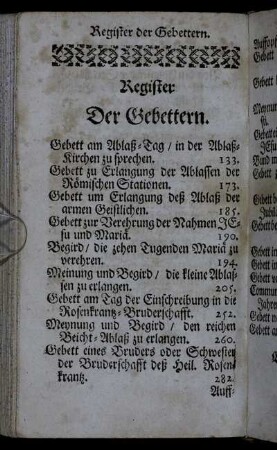 Register der Gebettern.
Register
Der Gebettern.
Gebett am Ablaß-Tag / in der Ablaß-
Kirchen zu sprechen. 133.
Gebett zu Erlangung der Ablassen der
Römischen Stationen. 173.
Gebett um Erlangung deß Ablaß der
armen Geistlichen. 185.
Gebett zur Verehrung der Nahmen JE-
su und Mariä. 190.
Begird / die zehen Tugenden Mariä zu
verehren. 194.
Meinung und Begird / die kleine Ablas-
sen zu erlangen. 205.
Gebett am Tag der Einschreibung in die
Rosenkrantz-Bruderschafft. 252.
Meynung und Begird / den reichen
Beicht-Ablaß zu erlangen. 260.
Gebett eines Bruders oder Schwester
der Bruderschafft deß Heil. Rosen-
krantz. 282.
Auff-